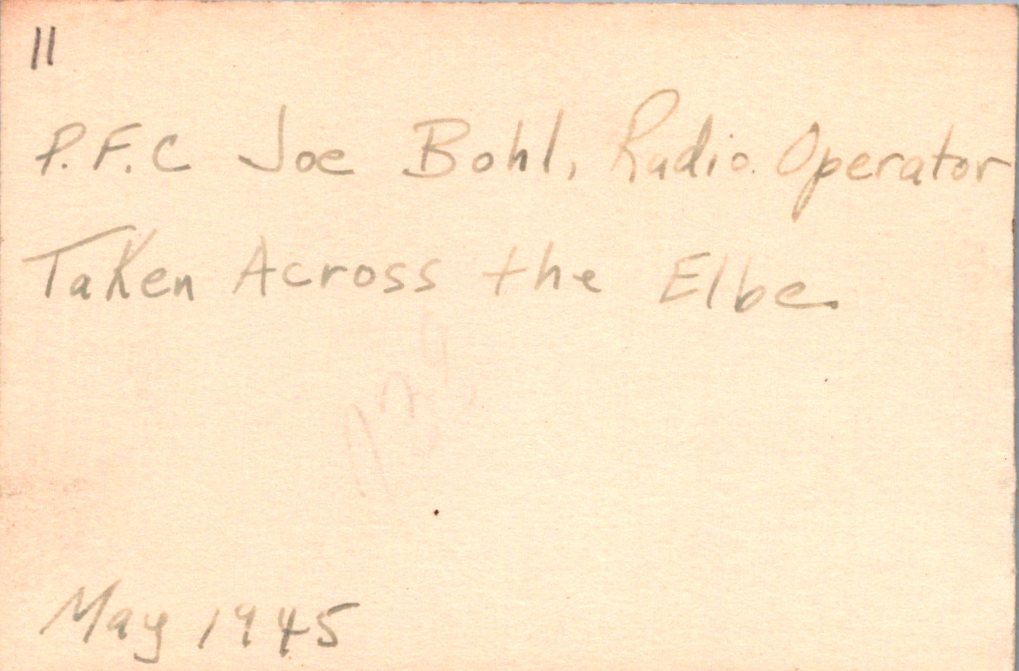 11
P.F.C Joe Bohl, Radio Operator
Taken Across the Elbe
May 1945